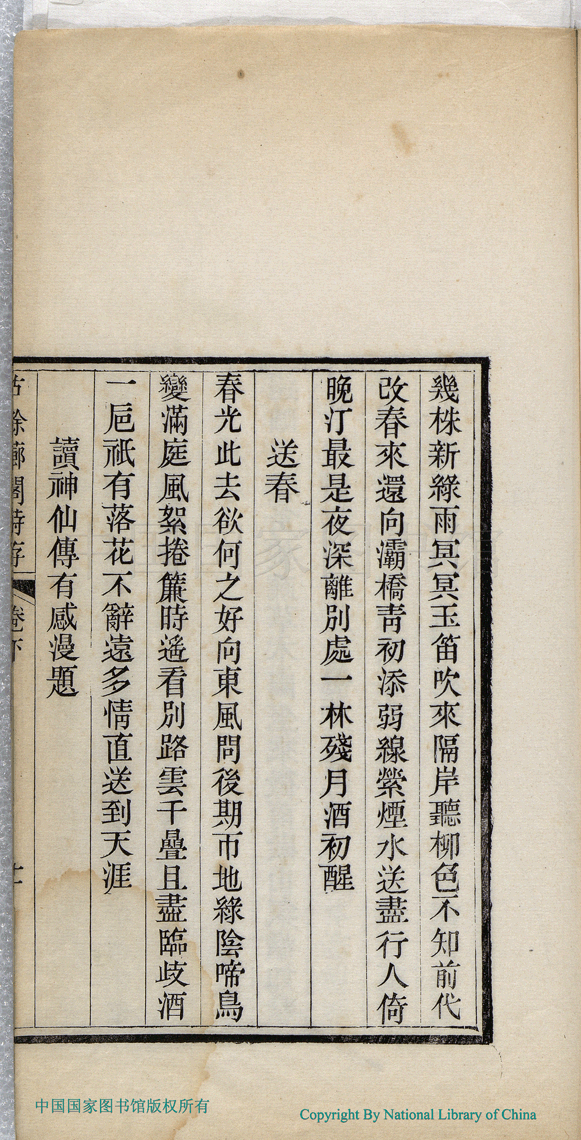 幾株新綠雨冥冥玉笛吹來隔岸聽柳色不知前代
改春來還向灞橋靑初添弱線縈煙水送盡行人倚
晚汀最是夜深離別處一林殘月酒初醒
送春
春光此去欲何之好向東風問後期帀地綠陰啼鳥
變滿庭風絮捲簾時遙看別路雲千疊且盡臨歧酒
一巵祇有落花不辭遠多情直送到天涯
讀神仙傳有感漫題
餘 閣詩存 卷下
中国国家图书馆版权所有
Copyright By National Library of China